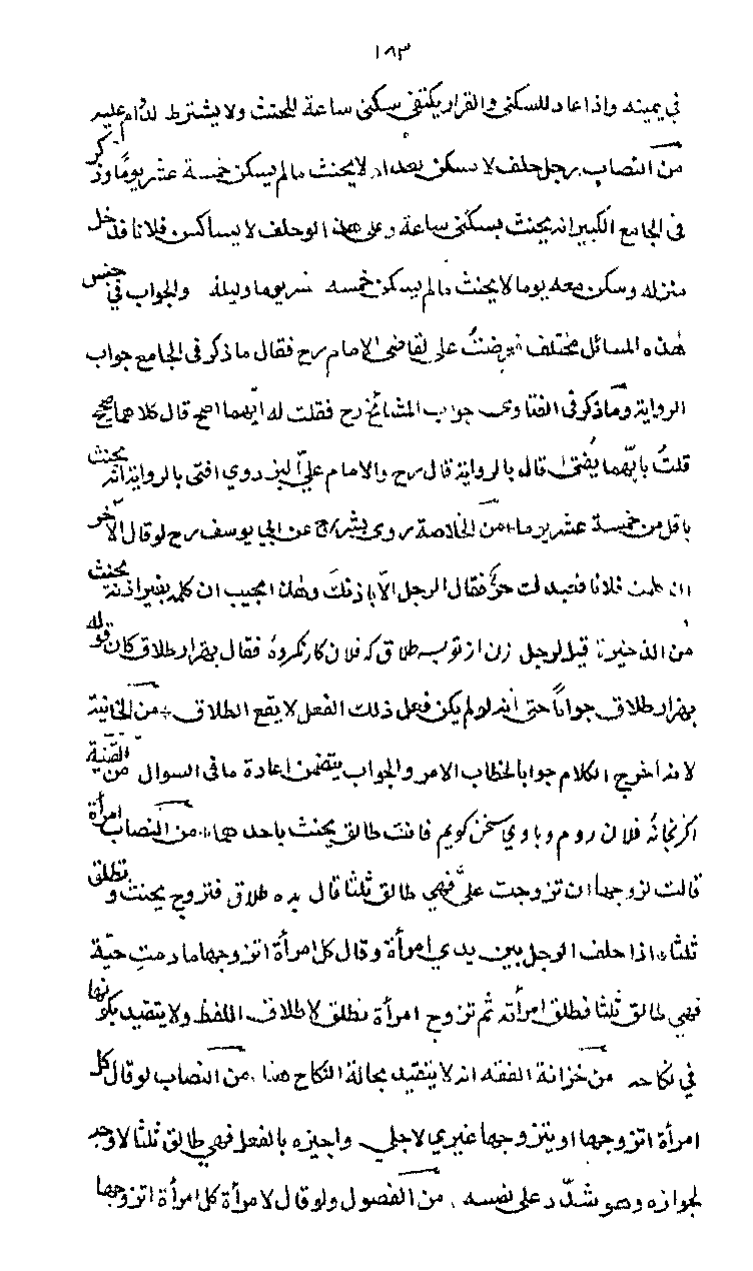 ١٨٣
في يمينه واذا عاد للسكنى والقرار يكتفى بسكنى ساعة للحنث ولا يشترط الدوام عليه
من النصاب رجل حلف لا يسكن بغداد لا يحنث مالم يسكن خمسة عشر يوما وذكر
في الجامع الكبير انه يحنث بسكنى ساعة وعلى هذا لو حلف لا يساكن فلانا فدخل
منزله وسكن معه يوما لا يحنث مالم يسكن خمسه عشر يوما وليلة والجواب في جنس
هذه المسائل مختلف فعرضتُ على القاضي الامام رح فقال ما ذكر في الجامع جواب
الرواية وما ذكر في الفتاوى جواب المشائخ رح فقلت له ايّهما اصح قال كلاهما صحيح
قلتُ بايّهما يُفتىٰ قال بالرواية قال رح والامام عليّ البزدوي افتى بالرواية انه يحنث
باقل من خمسة عشر يوما من الخلاصة روى بشر رح عن ابي يوسف رح لو قال لآخر
ان كلمت فلانا فعبدك حرٌّ فقال الرجل الّا باذنك وهذا مجيب ان كلمه بغير اذنه يحنث
من الذخيرة قيل لرجل زن از تو بسه طلاق كه فلان كار نكرده فقال بهزار طلاق كان قوله
بهزار طلاق جواباً حتى انه لو لم يكن فعل ذلك الفعل لا يقع الطلاق من الخانية
لانه اخرج الكلام جوابا لخطاب الامر والجواب يتضمن اعادة ما في السوال من القنية
اكر بخانهٔ فلان روم وباوي سخن كويم فانت طالق يحنث باحدهما من النصاب امرأة
قالت لزوجها ان تزوجت عليَّ فهي طالق ثلثا قال بده طلاق فتزوج يحنث وتطلق
ثلثا اذا حلف الرجل بين يدي امرأة وقال كل امرأة اتزوجها ما دمتِ حيّة
فهي طالق ثلثا فطلق امرأته ثم تزوج امرأة تطلق لاطلاق اللفظ ولا يتقيد بكونها
في نكاحه من خزانة الفقه انه لا يتقيد بحالة النكاح هذا من النصاب لو قال كل
امرأة اتزوجها او يتزوجها غيري لاجلي واجيزه بالفعل فهي طالق ثلثا لا وجه
لجوازه وهو شدّد على نفسه من الفصول ولو قال لامرأة كل امرأة اتزوجها